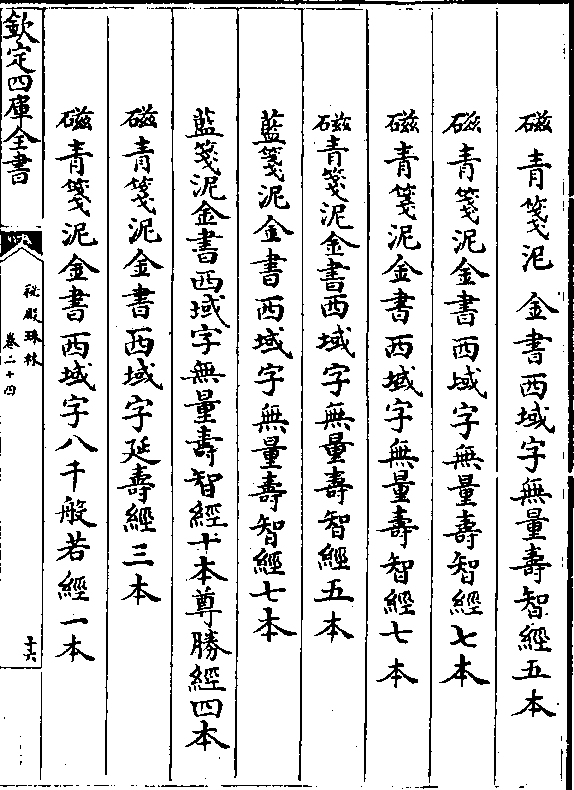 磁青箋泥金書西域字無量壽智經五本
磁青箋泥金書西域字無量壽智經七本
磁青箋泥金書西域字無量壽智經七本
磁青箋泥金書西域字無量壽智經五本
藍箋泥金書西域字無量壽智經七本
藍箋泥金書西域字無量壽智經十本尊勝經四本
磁青箋泥金書西域字延壽經三本
磁青箋泥金書西域字八千般若經一本
欽定四庫全書
秘殿珠林
卷二十四
十六